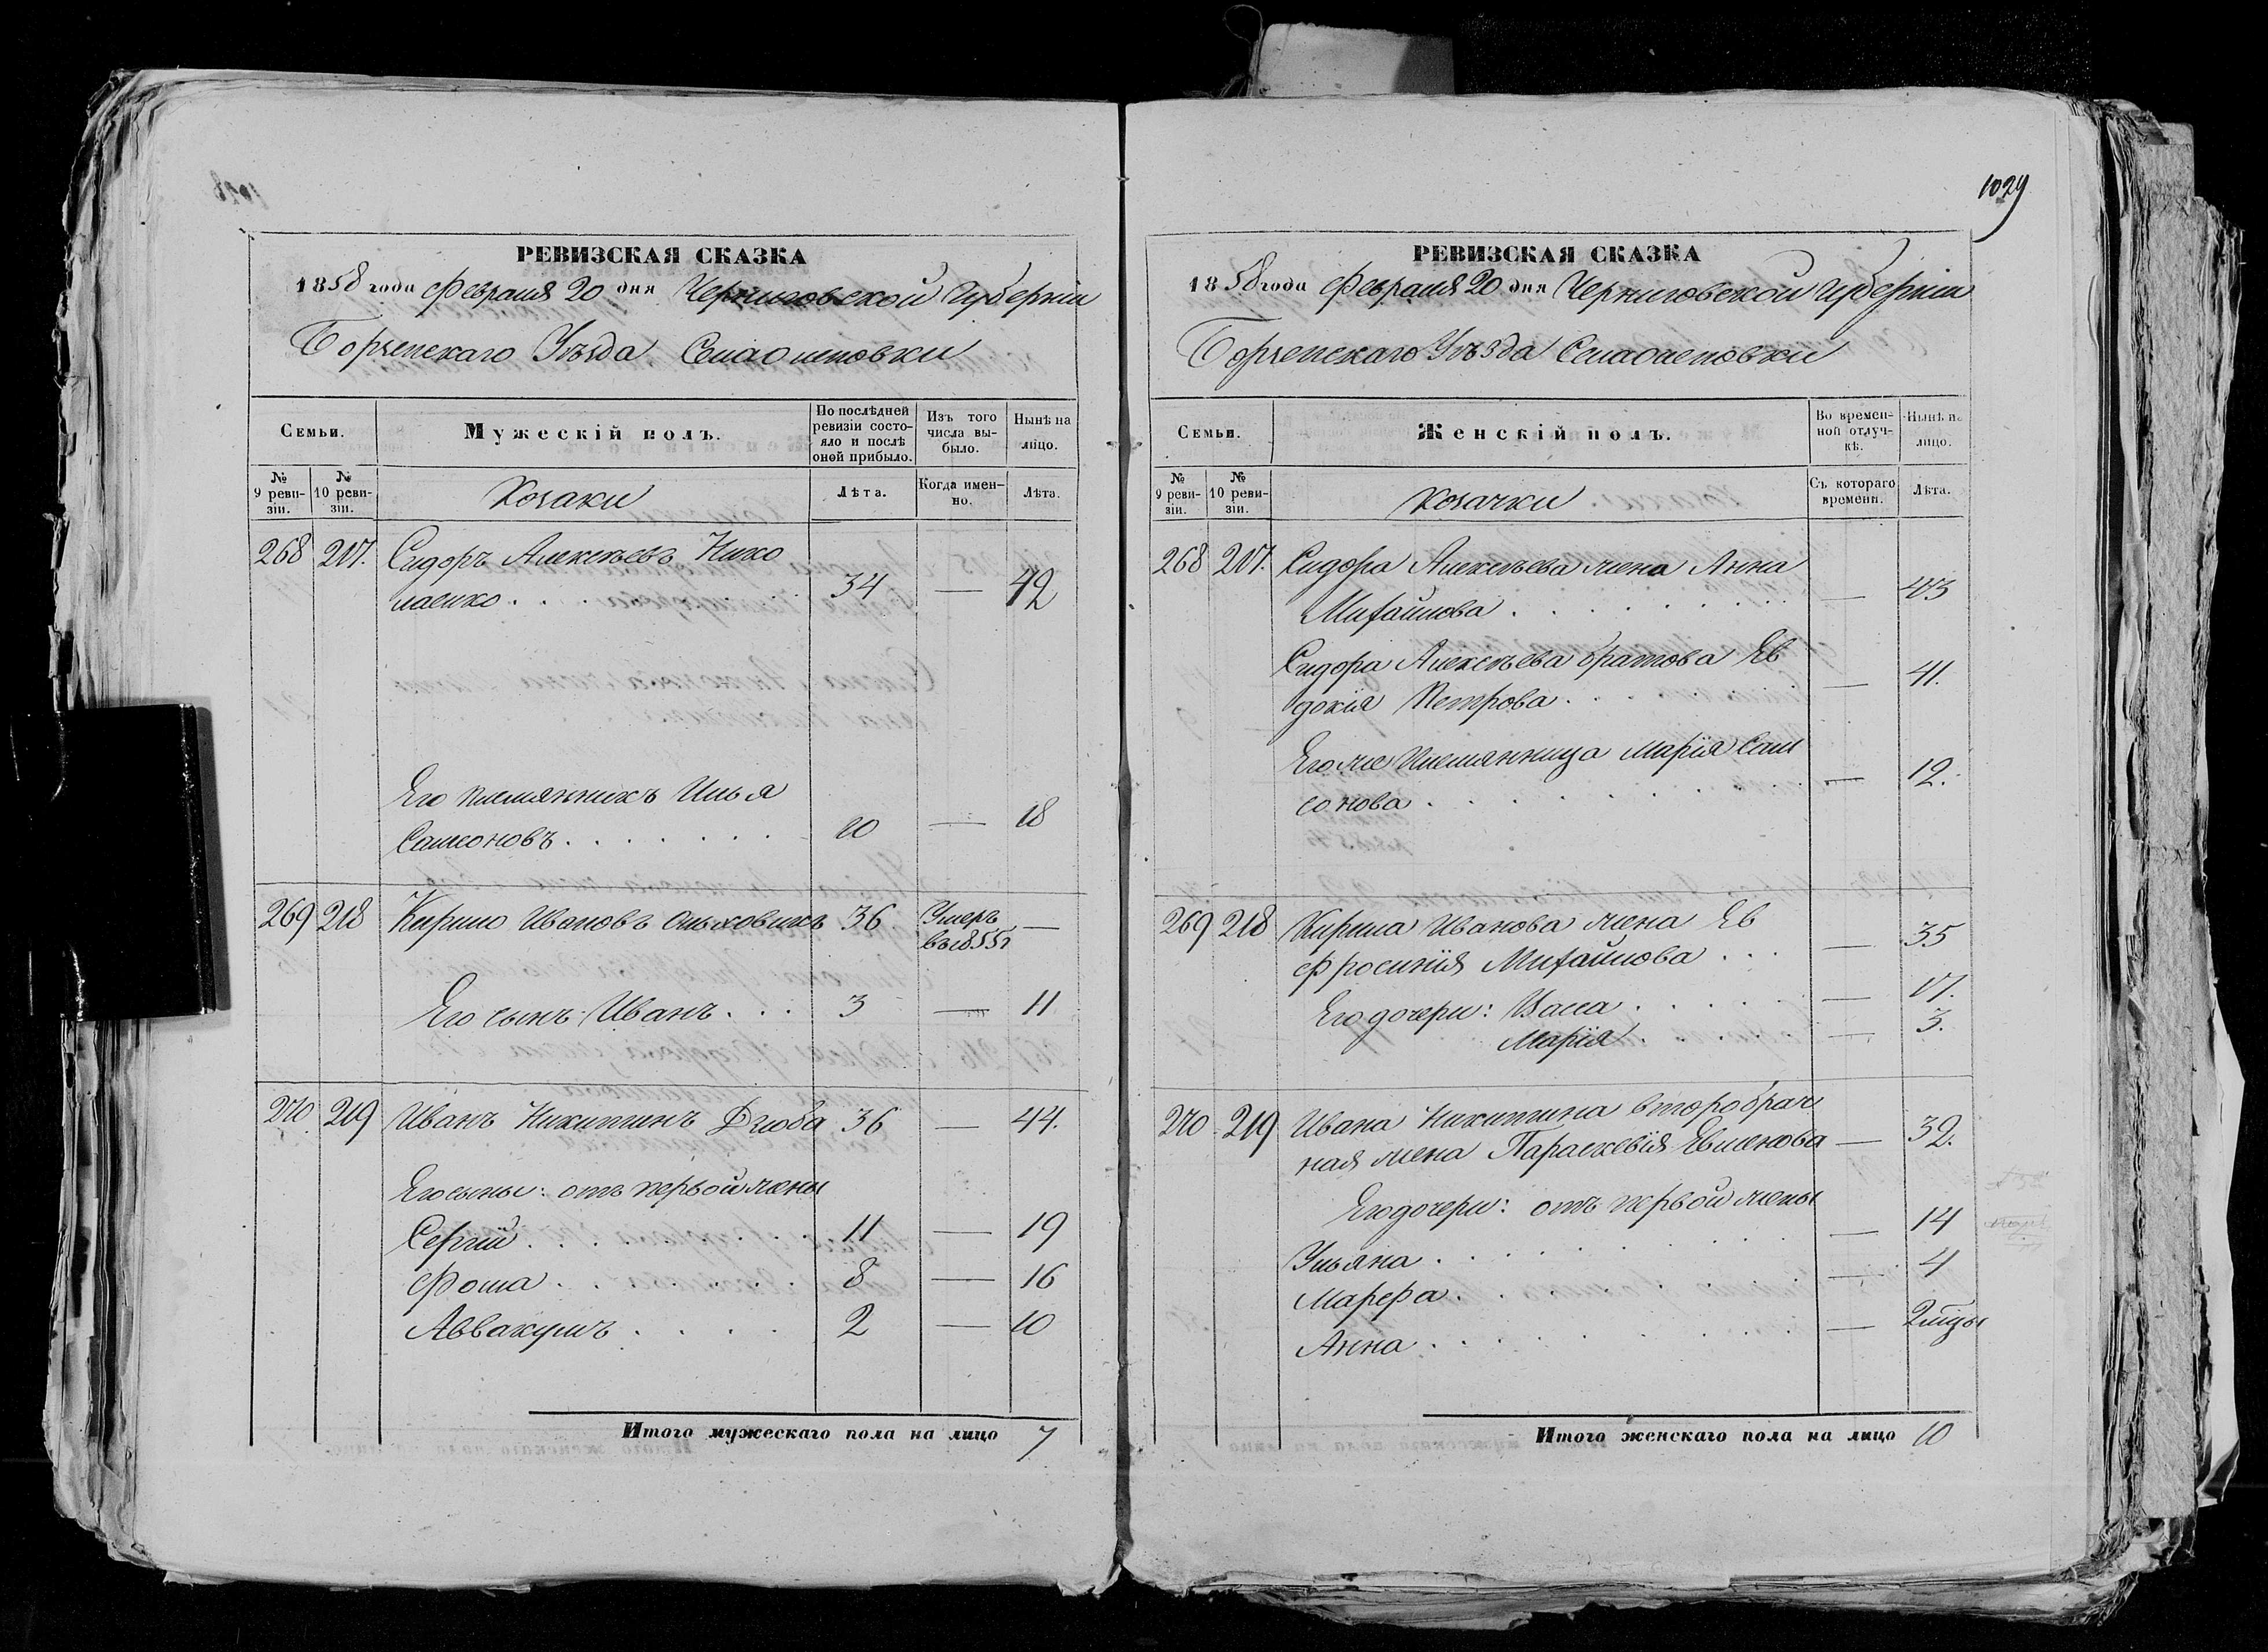 РЕВИЗСКАЯ СКАЗКА
1858 года Февраля 20 дня Черниговской Губерніи
Борзенскаго Уѣзда Села
Семьи.
Мужескій полъ.
По послѣдней ревизіи состояло и послѣ оной прибыло.
Изъ того числа выбыло.
Нынѣ на лицо.
№ 9 ревизіи.
№ 10 ревизіи.
Козаки
Лѣта.
Когда именно.
Лѣта.
268 217. Сидоръ Алексѣевъ Нико
лаенко . . . 34 — 42
Его племянникъ Илья
Самсоновъ . . . . . . . 10 — 18
269 218 Кирило Ивановъ 36 Умеръ —
въ 1855 г
Его сынъ Иванъ . . . 3 — 11
270 219 Иванъ Никитинъ Дзюба 36 — 44.
Его сыны: отъ первой жены
Сергій . . . . . . . 11 — 19
Фома . . . . . . 8 — 16
Аввакумъ . . . . 2 — 10
Итого мужескаго пола на лицо 7
1029
РЕВИЗСКАЯ СКАЗКА
1858 года Февраля 20 дня Черниговской Губерніи
Борзенскаго Уѣзда Села
Семьи.
Женскій полъ.
Во временной отлучкѣ.
Нынѣ на лицо.
№ 9 ревизіи.
№ 10 ревизіи.
Козачки
Съ котораго времени.
Лѣта.
268 217. Сидора Алексѣева жена Анна
Михайлова . . . . . . . . — 43
Сидора Алексѣева братова Ев
докія Петрова . . . . . — 41.
Его же племянница Марія Сам
сонова . . . . . . . . — 12.
269 218 Кирила Иванова жена Ев
фросинія Михайлова . . . — 35
Его дочери: Васса . . . . . — 17.
Марія . . . . — 3.
270 219 Ивана Никитина второбрач
ная жена Параскевія Евменова — 32.
Его дочери: отъ первой жены
Ульяна . . . . . . . . . — 14
Марфа . . . . . . . . — 4
Анна . . . . . . . . . — 2 мѣцы
Итого женскаго пола на лицо 10